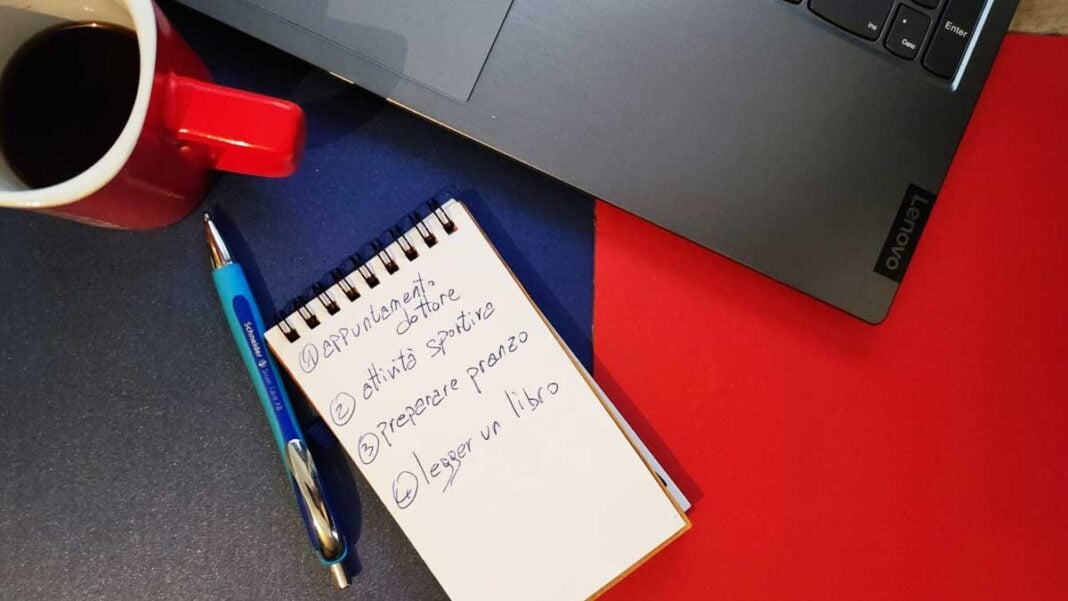 Ins
Canc
Enter
Lenovo
Schneider
① appuntament.
dottore
② attività sportiva
③ preparare pranzo
④ legger un libro